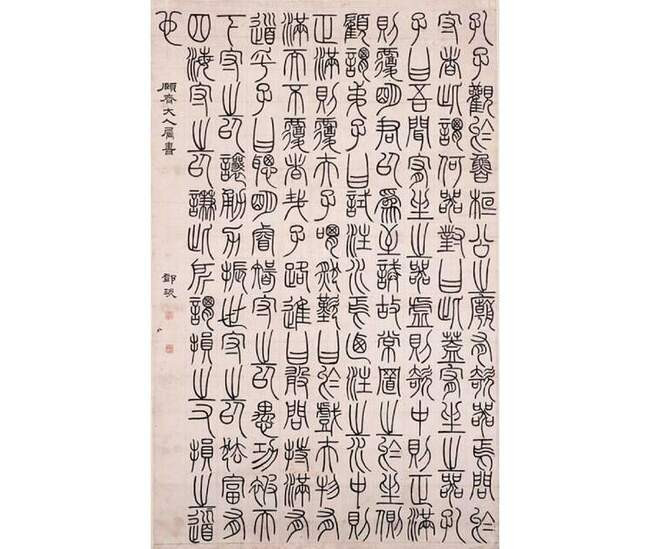 孔子觀於魯桓公之廟有欹器焉問於
守者此謂何器對曰此蓋宥坐之器孔
子曰吾聞宥坐之器虛則欹中則正滿
則覆明君以爲至誡故常置之於坐側
顧謂弟子曰試注水焉乃注之水中則
正滿則覆夫子喟然歎曰於戲夫物有
滿而不覆者哉子路進曰敢問持滿有
道乎子曰聰明睿智守之以愚功被天
下守之以讓勇力振世守之以怯富有
四海守之以謙此所謂損之又損之道
也
願齋大人屬書
鄧琰